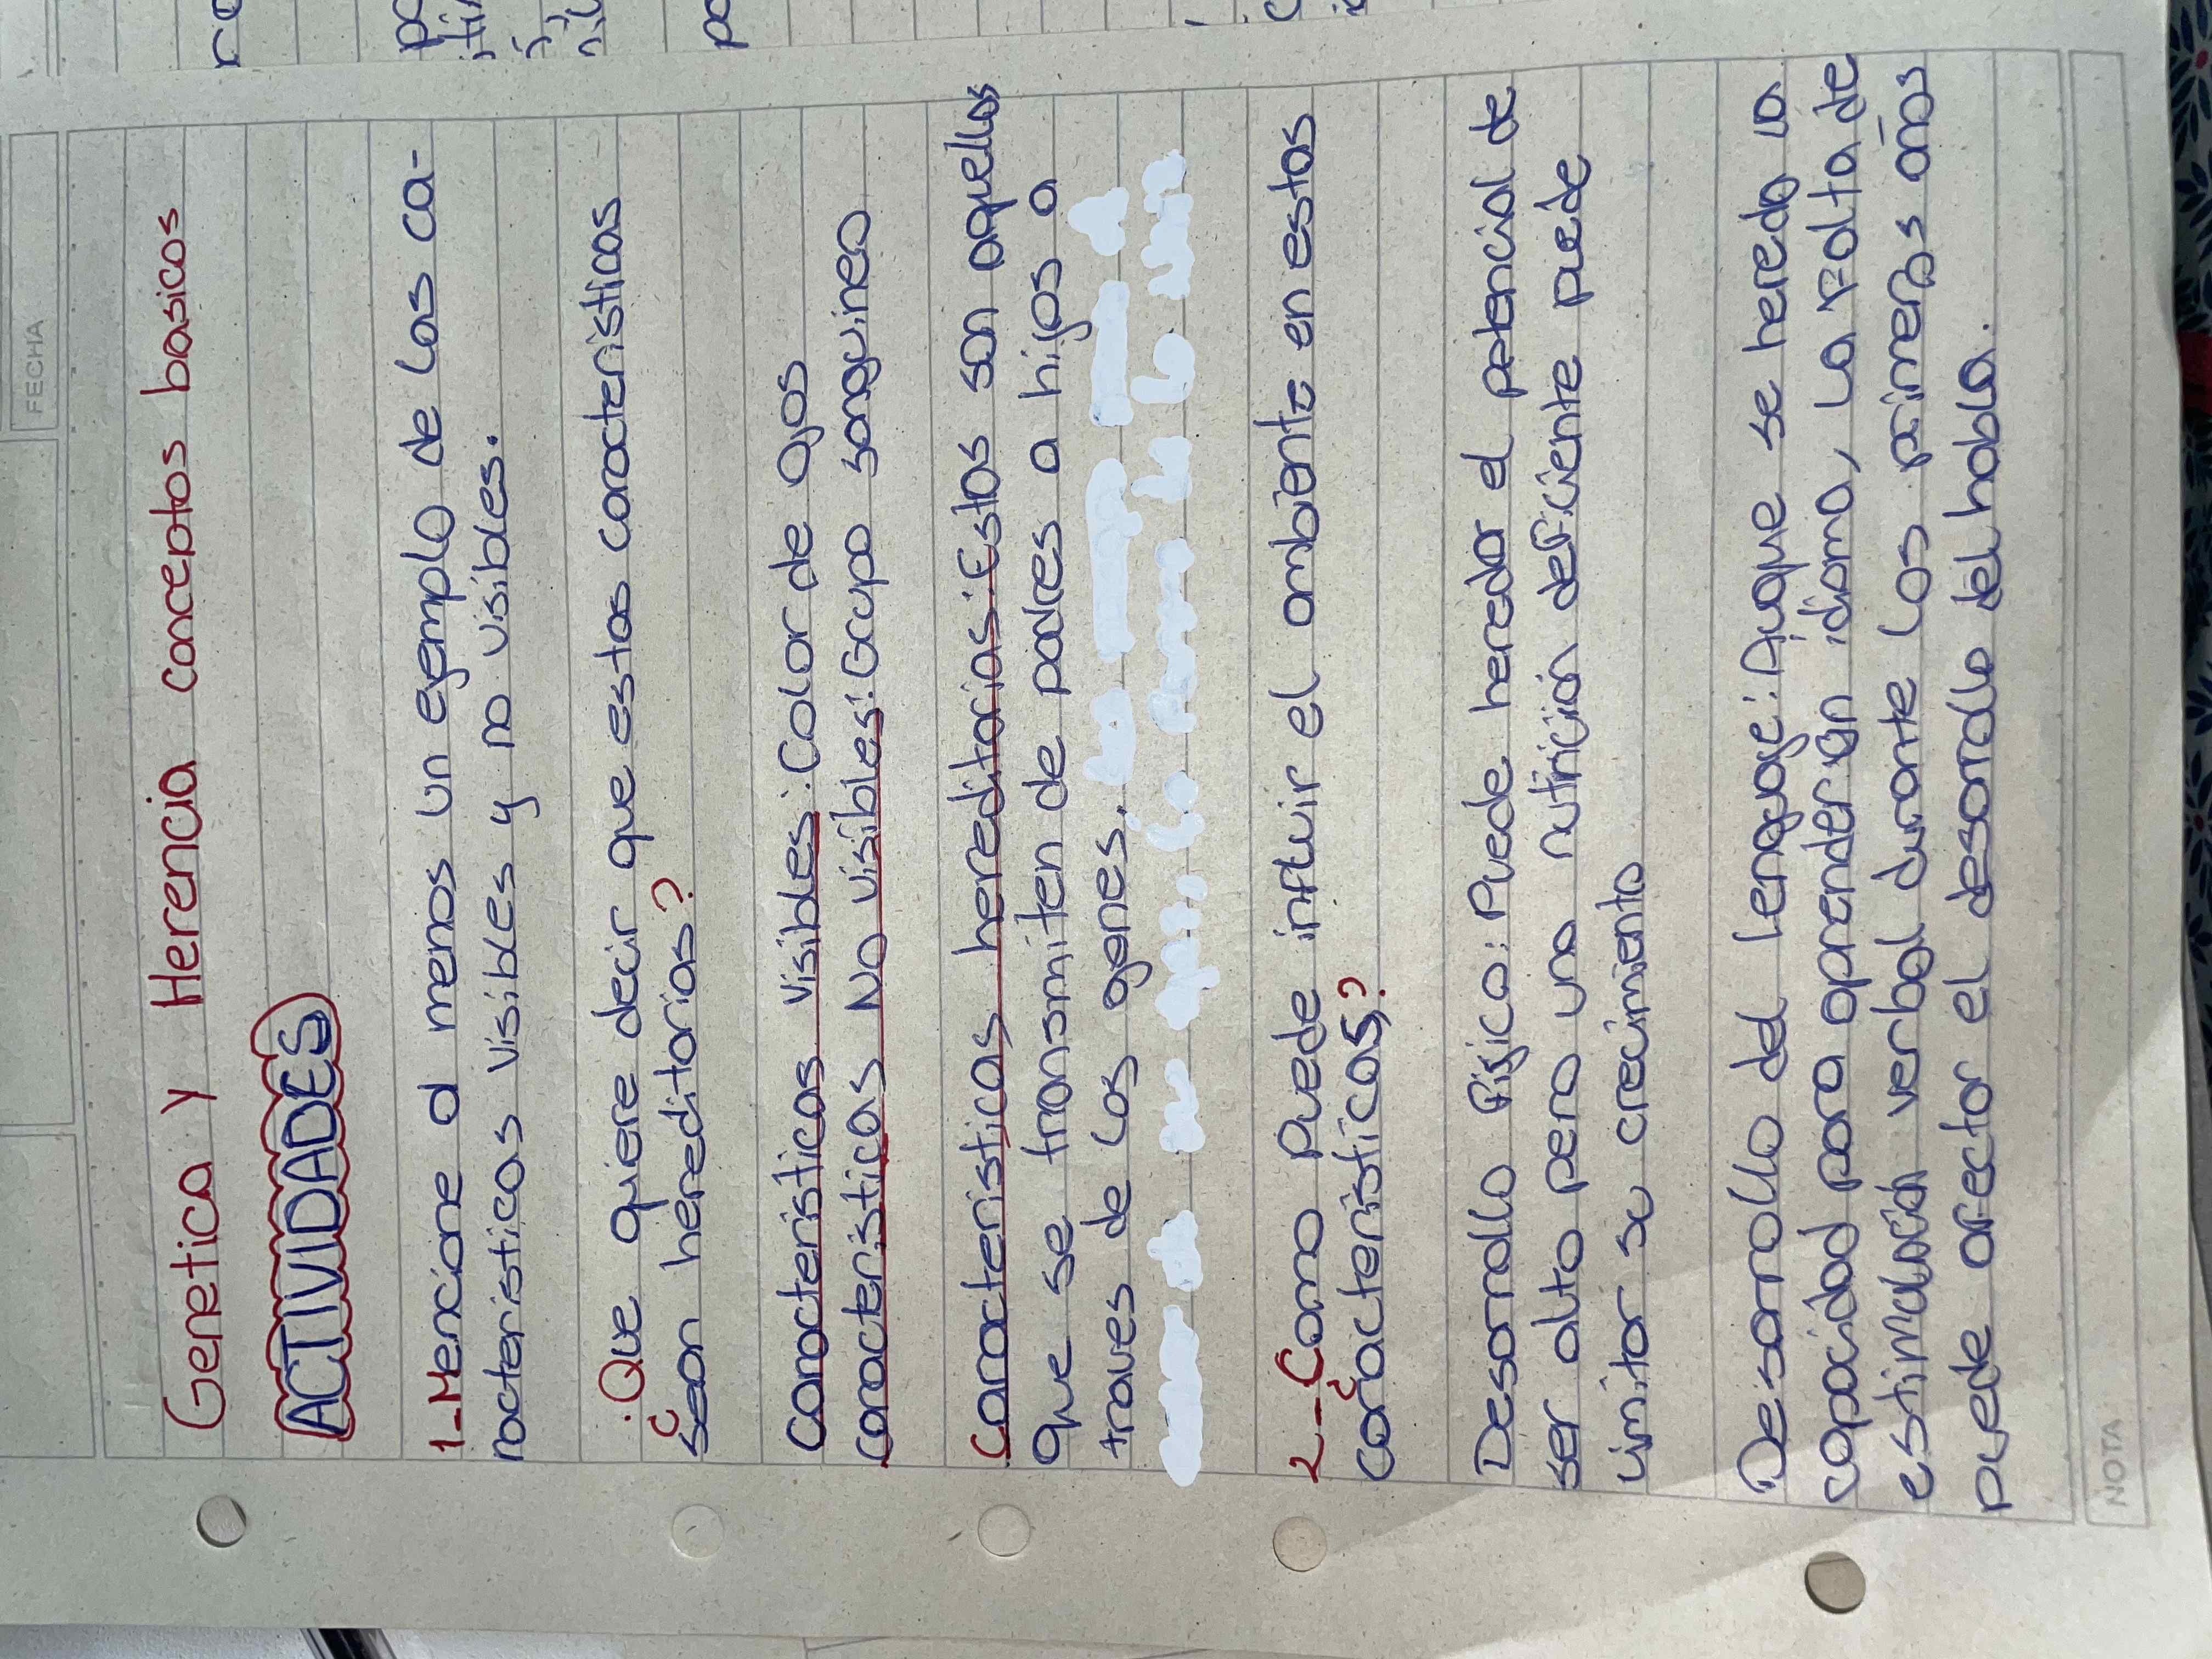 FECHA
Genetica y Herencia conceptos basicos
ACTIVIDADES
1-Mencione al menos un ejemplo de las ca-
racteristicas visibles y no visibles.
¿Que quiere decir que estas caracteristicas
sean hereditarias?
Caracteristicas visibles: Color de ojos
caracteristicas No visibles: Grupo sanguineo
Caracteristicas hereditarias: Estas son aquellas
que se transmiten de padres a hijos a
traves de los genes.
2-¿Como puede influir el ambiente en estas
características?
Desarrollo fisico: Puede heredar el potencial de
ser alto pero una nutrición deficiente puede
limitar su crecimiento
Desarrollo del lenguaje: Auque se hereda la
capacidad para aprender un idioma, la falta de
estimulación verbal durante los primeros años
puede afectar el desarrollo del habla.
NOTA